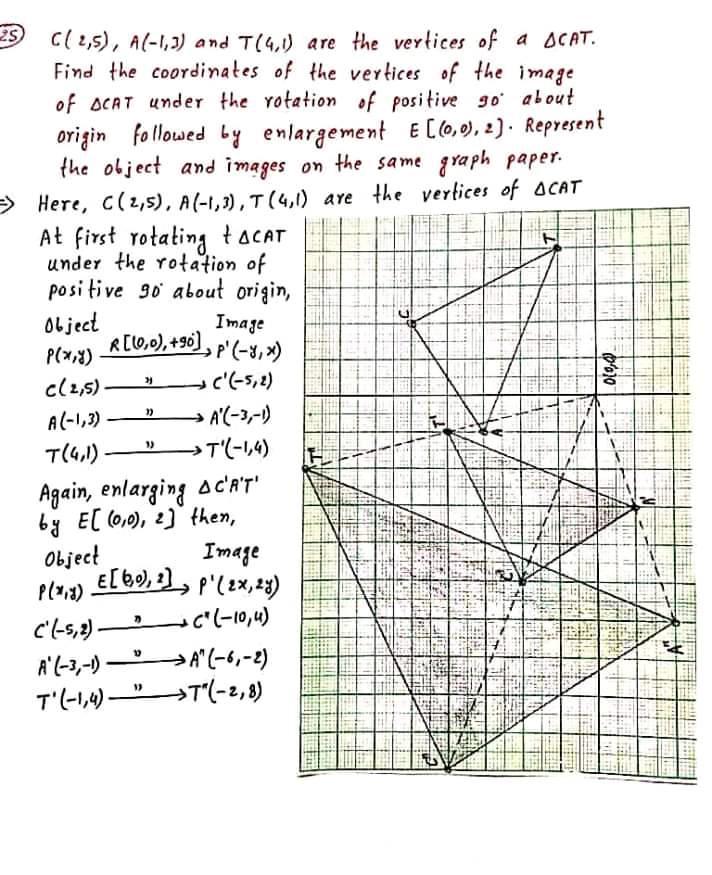 25) C(2,5), A(-1,3) and T(4,1) are the vertices of a ΔCAT.
Find the coordinates of the vertices of the image
of ΔCAT under the rotation of positive 90° about
origin followed by enlargement E[(0,0), 2]. Represent
the object and images on the same graph paper.
⇒ Here, C(2,5), A(-1,3), T(4,1) are the vertices of ΔCAT
At first rotating t ΔCAT
under the rotation of
positive 90° about origin,
Object Image
P(x,y) R[(0,0),+90°] → P'(-y,x)
C(2,5) " → C'(-5,2)
A(-1,3) " → A'(-3,-1)
T(4,1) " → T'(-1,4)
Again, enlarging ΔC'A'T'
by E[(0,0), 2] then,
Object Image
P(x,y) E[(0,0), 2] → P'(2x,2y)
C'(-5,2) " → C"(-10,4)
A'(-3,-1) " → A"(-6,-2)
T'(-1,4) " → T"(-2,8)
T
C
O(0,0)
T'
A
T"
A'
C'
A"
C"